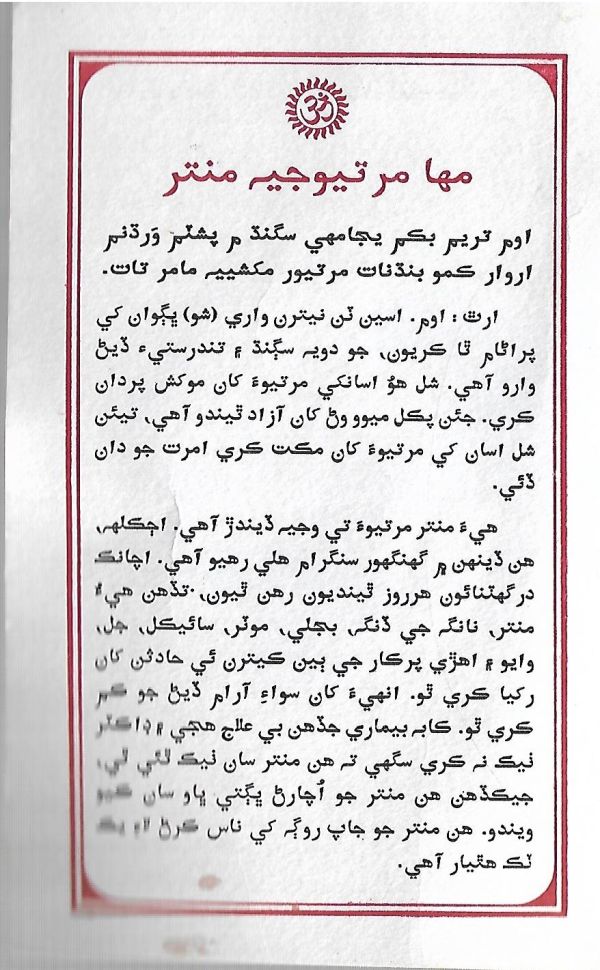 ॐ
مها مرتيوجيہ منتر
اوم ٽريم بڪم يجامهي سگنڌ م پشٽم وَرڌنم
اروار ڪمو بنڌنات مرتيور مکشييہ مامر تات.
ارٿ : اوم. اسين ٽن نيترن واري (شو) ڀڳوان کي
پراڻام ٿا ڪريون، جو دويہ سڳنڌ ۽ تندرستيءَ ڏيڻ
وارو آهي. شل هوُ اسانکي مرتيوءَ کان موکش پردان
ڪري. جئن پڪل ميوو وڻ کان آزاد ٿيندو آهي، تيئن
شل اسان کي مرتيوءَ کان مڪت ڪري امرت جو دان
ڏئي.
هيءَ منتر مرتيوءَ تي وجيہ ڏيندڙ آهي. اڄڪلهہ،
هن ڏينهن ۾ گهنگهور سنگرام هلي رهيو آهي. اچانڪ
درگهٽنائون هرروز ٿينديون رهن ٿيون، تڏهن هيءُ
منتر، نانگہ جي ڏنگہ، بجلي، موٽر، سائيڪل، جل،
وايو ۽ اهڙي پرڪار جي ٻين ڪيترن ئي حادثن کان
رکيا ڪري ٿو. انهيءَ کان سواءِ آرام ڏيڻ جو ڪم
ڪري ٿو. ڪابہ بيماري جڏهن بي علاج هجي ۽ ڊاڪٽر
ٺيڪ نہ ڪري سگهي تہ هن منتر سان ٺيڪ ٿئي ٿي،
جيڪڏهن هن منتر جو اُچارڻ ڀڳتي ڀاو سان ڪيو
ويندو. هن منتر جو جاپ روڳہ کي ناس ڪرڻ لاءِ هڪ
ٽڪ هٿيار آهي.